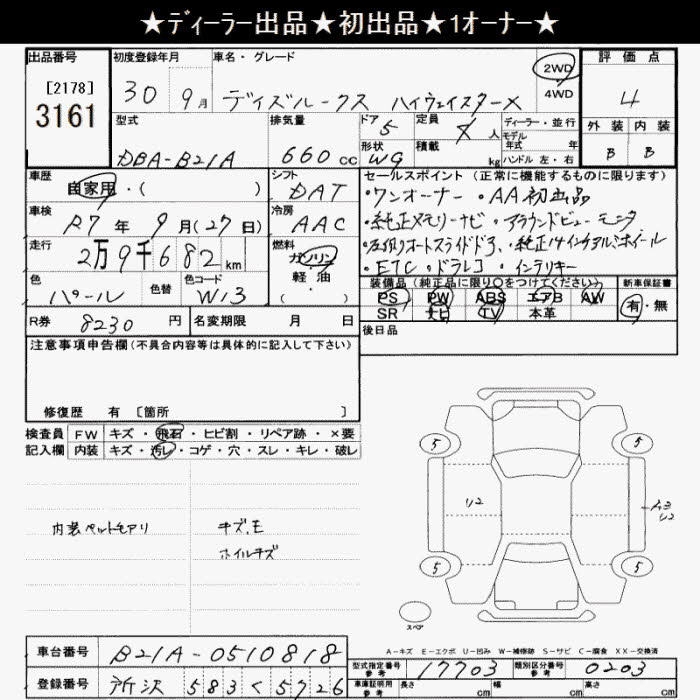 ★ディーラー出品★初出品★1オーナー★
出品番号 初度登録年月 車名・グレード 評価点
[2178] 30 9月 デイズルークス ハイウェイスターX 2WD 4
3161 4WD
型式 排気量 ドア 定員 ディーラー・並行 外装 内装
DBA-B21A 660cc 5 4人 モデル年式 年 B B
形状 WG 積載 kg ハンドル 左・右
車歴 シフト セールスポイント (正常に機能するものに限ります)
自家用・( ) DAT ・ワンオーナー ・AA初出品
車検 冷房 ・純正メモリーナビ ・アラウンドビューモニタ
R7年9月(27日) AAC
走行 燃料 ・左側オートスライドドア、・純正14インチアルミホイール
2万9千682km ガソリン ・ETC ・ドラレコ ・インテリキー
色 色替 色コード 軽・油
パール W13 ( )
装備品 (純正品に限り○をつけてください) 新車保証書
PS PW ABS エアB AW 有・無
SR ナビ TV 本革
R券 8230円 名変期限 月 日 後日品
注意事項申告欄(不具合内容等は具体的に記入して下さい)
修復歴 有 [箇所 ]
検査員 FW キズ・飛石・ヒビ割・リペア跡・×要
記入欄 内装 キズ・汚レ・コゲ・穴・スレ・キレ・破レ
5 5
U2
U2
内装ペットモアリ キズ、E
ホイルキズ
5 5
スペア
A-キズ E-エクボ U-凹み W-補修跡 S-サビ C-腐食 XX-交換済
車台番号 B21A-0510818
型式指定番号 参考 17703 類別区分番号 参考 0203
登録番号 所沢 583く5726
車庫証明用 参考 長さ cm 幅 cm 高さ cm